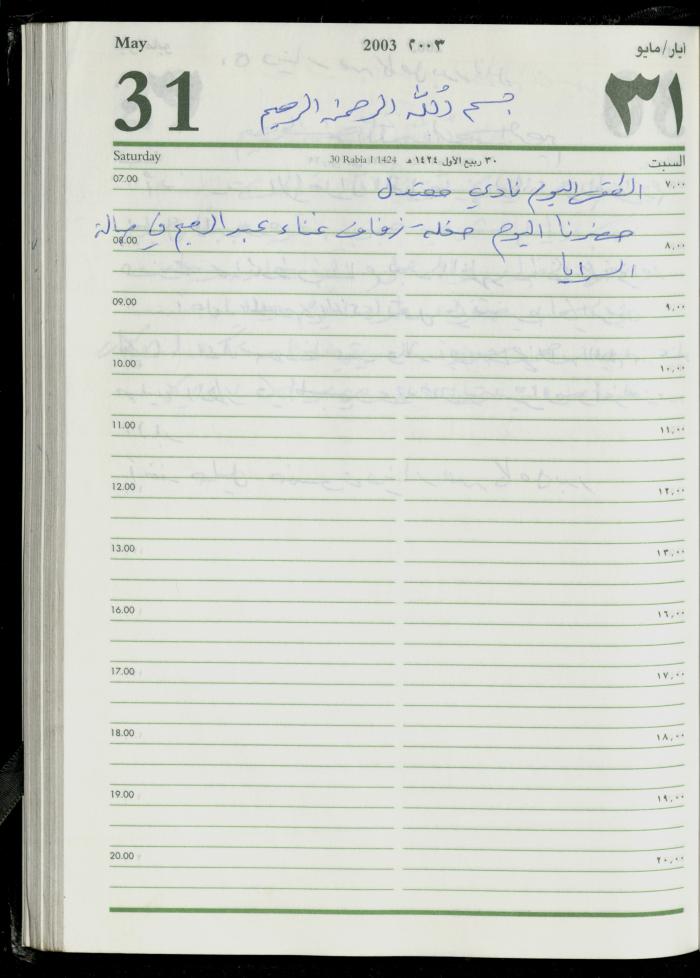 May 2003 ٢٠٠٣ أيار/مايو
31 ٣١
بسم الله الرحمن الرحيم
Saturday 30 Rabia I 1424 ٣٠ ربيع الأول ١٤٢٤ هـ السبت
07.00 ٧,٠٠
الطقس اليوم نادي معتدل
حضرنا اليوم حفلة زفاف غناء عبد في صالة
08.00 ٨,٠٠
السرايا
09.00 ٩,٠٠
10.00 ١٠,٠٠
11.00 ١١,٠٠
12.00 ١٢,٠٠
13.00 ١٣,٠٠
16.00 ١٦,٠٠
17.00 ١٧,٠٠
18.00 ١٨,٠٠
19.00 ١٩,٠٠
20.00 ٢٠,٠٠